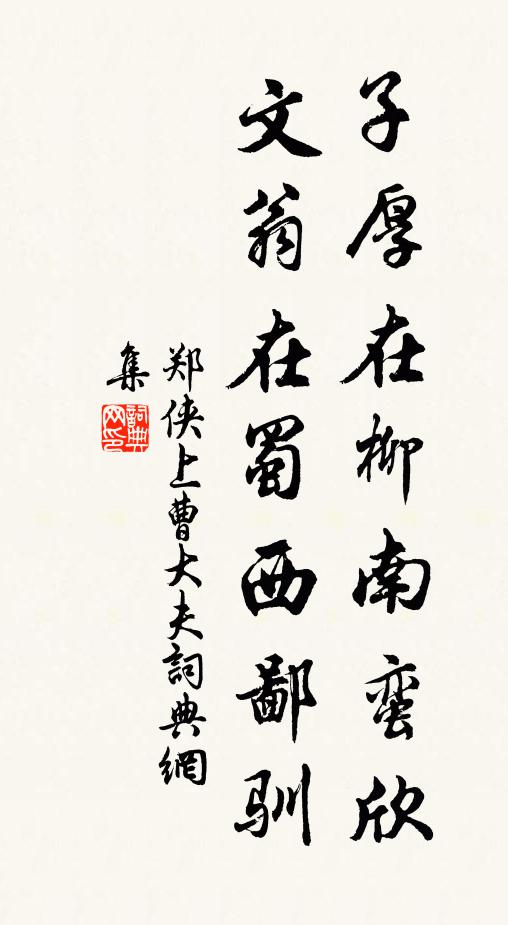 子厚在柳南蛮欣
文翁在蜀西鄙驯
郑侠上曹大夫詞典網
集
詞典网印